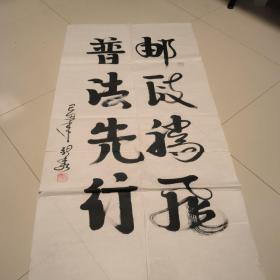 邮政腾飞
普法先行